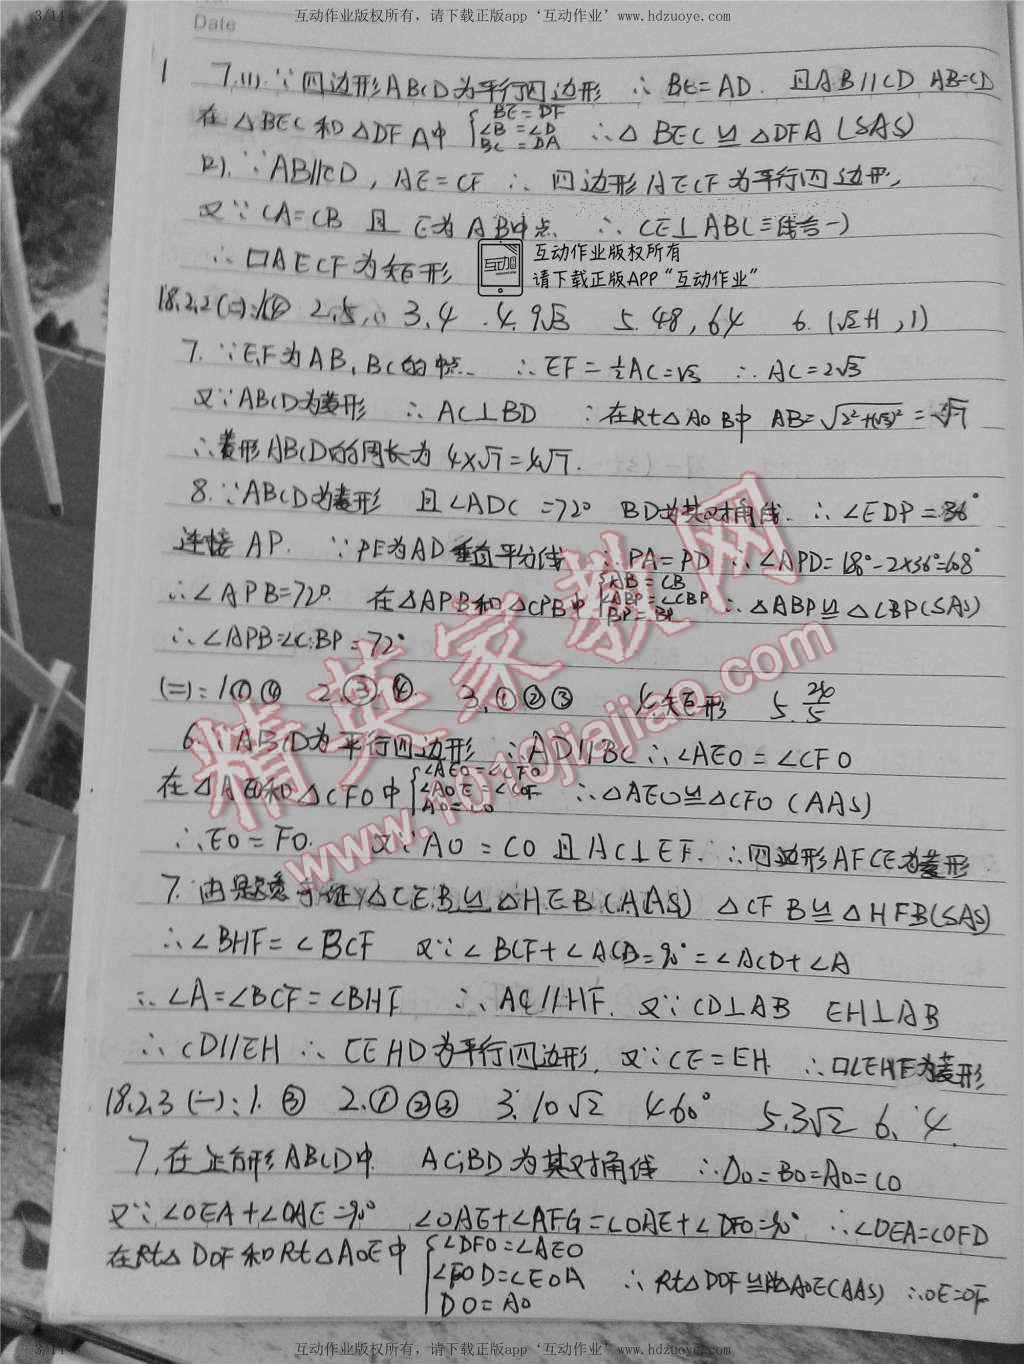 3/14 互动作业版权所有，请下载正版app‘互动作业’www.hdzuoye.com
Date
1 7.(1).∵四边形ABCD为平行四边形 ∴ BC=AD. 且AB//CD AB=CD
在△BEC和△DFA中 { BE=DF ∠B=∠D BC=DA ∴△BEC≌△DFA(SAS)
(2).∵AB//CD, AE=CF ∴四边形AECF为平行四边形,
又∵CA=CB 且 E为AB中点. ∴CE⊥AB(三线合一)
∴口AECF为矩形
互动作业版权所有
请下载正版APP“互动作业”
18.2.2(一):1④ 2.5, 3.4 4.9√3 5.48,64 6.(√2+1,1)
7.∵E,F为AB,BC的中点. ∴EF=½AC=√3 ∴AC=2√3
又∵ABCD为菱形 ∴AC⊥BD ∴在Rt△AOB中 AB=√2²+(√3)²=√7
∴菱形ABCD的周长为 4×√7=4√7.
8.∵ABCD为菱形 且∠ADC=72° BD为其对角线. ∴∠EDP=36°
连接AP. ∵PE为AD垂直平分线 ∴PA=PD ∴∠APD=180°-2×36°=108°
∴∠APB=72°. 在△APB和△CPB中 { AB=CB ∠ABP=∠CBP BP=BP ∴△ABP≌△CBP(SAS)
∴∠APB=∠CBP=72°
(二):1①④ 2.③④ 3.①②③ 4.矩形 5.
6.∵ABCD为平行四边形 ∴AD//BC ∴∠AEO=∠CFO
在△AEO和△CFO中 { ∠AEO=∠CFO ∠AOE=∠COF AO=CO ∴△AEO≌△CFO(AAS)
∴EO=FO. 又∵AO=CO 且AC⊥EF. ∴四边形AFCE为菱形
7.由题意可证△CEB≌△HEB(AAS) △CFB≌△HFB(SAS)
∴∠BHF=∠BCF 又∵∠BCF+∠ACD=90°=∠ACD+∠A
∴∠A=∠BCF=∠BHF ∴AC//HF. 又∵CD⊥AB EH⊥AB
∴CD//EH ∴CEHD为平行四边形, 又∵CE=EH ∴口CEHF为菱形
18.2.3(一):1.③ 2.①②③ 3.10√2 4.60° 5.3√2 6.4.
7.在正方形ABCD中 AC,BD为其对角线 ∴DO=BO=AO=CO
又∵∠OEA+∠OAE=90° ∠OAE+∠AFG=∠OAE+∠DFO=90° ∴∠OEA=∠OFD
在Rt△DOF和Rt△AOE中 { ∠DFO=∠AEO ∠FOD=∠EOA DO=AO ∴Rt△DOF≌Rt△AOE(AAS) ∴OE=OF
精英家教网
www.1010jiajiao.com
3/14 互动作业版权所有，请下载正版app‘互动作业’www.hdzuoye.com